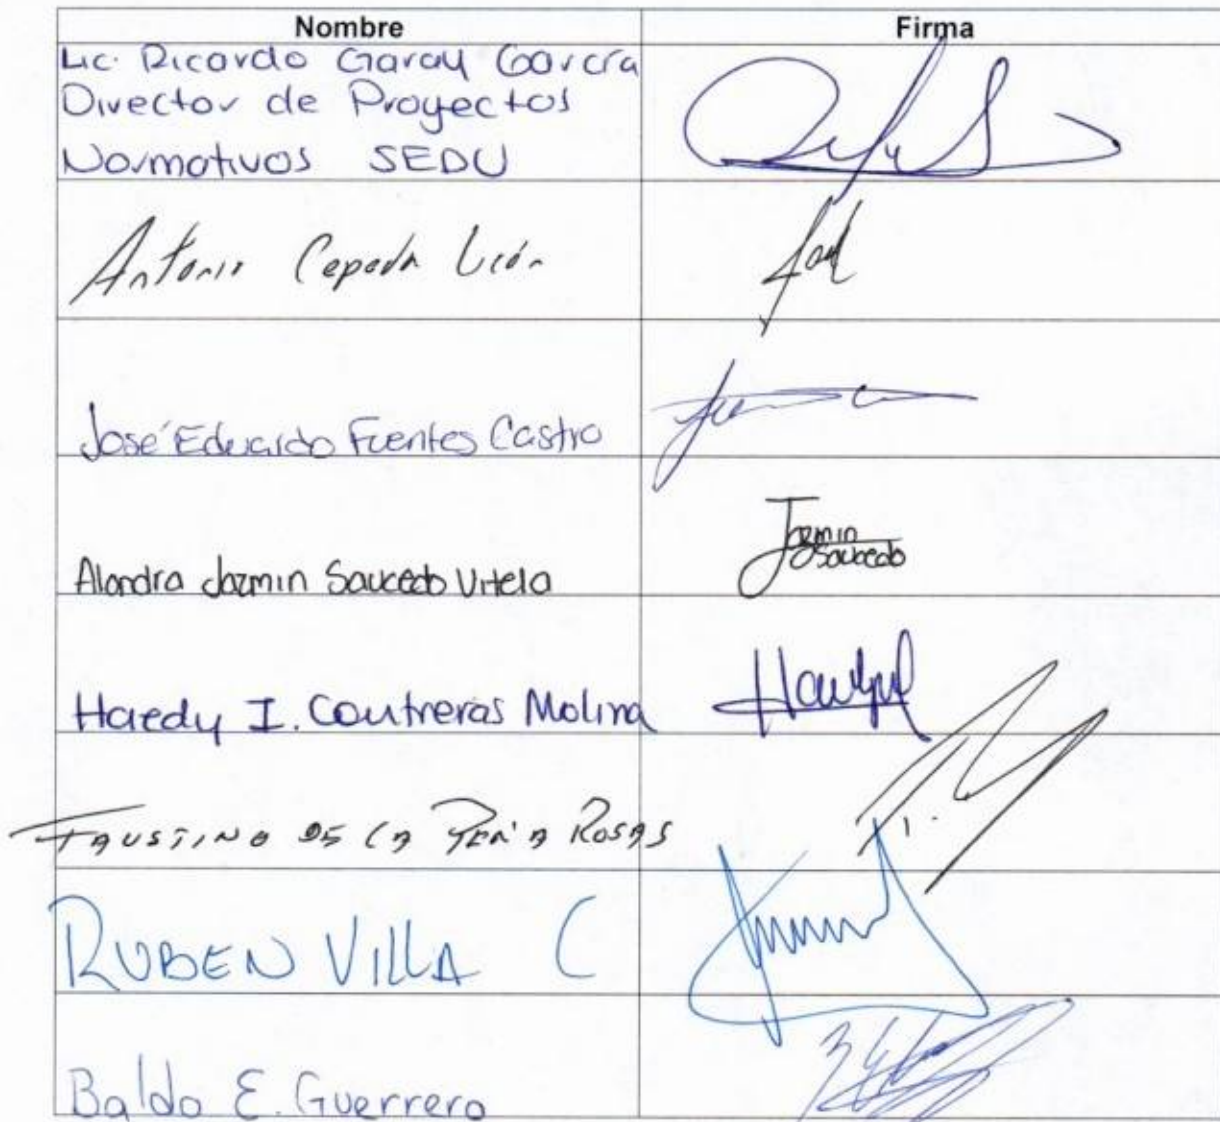 Nombre Firma
Lic. Ricardo Garay García
Director de Proyectos
Normativos SEDU
Antonio Cepeda León
José Eduardo Fuentes Castro
Alondra Jazmin Saucedo Vitela
Jazmin
Saucedo
Haedy I. Contreras Molina
FAUSTINO DE LA PEÑA ROSAS
RUBEN VILLA C
Baldo E. Guerrero